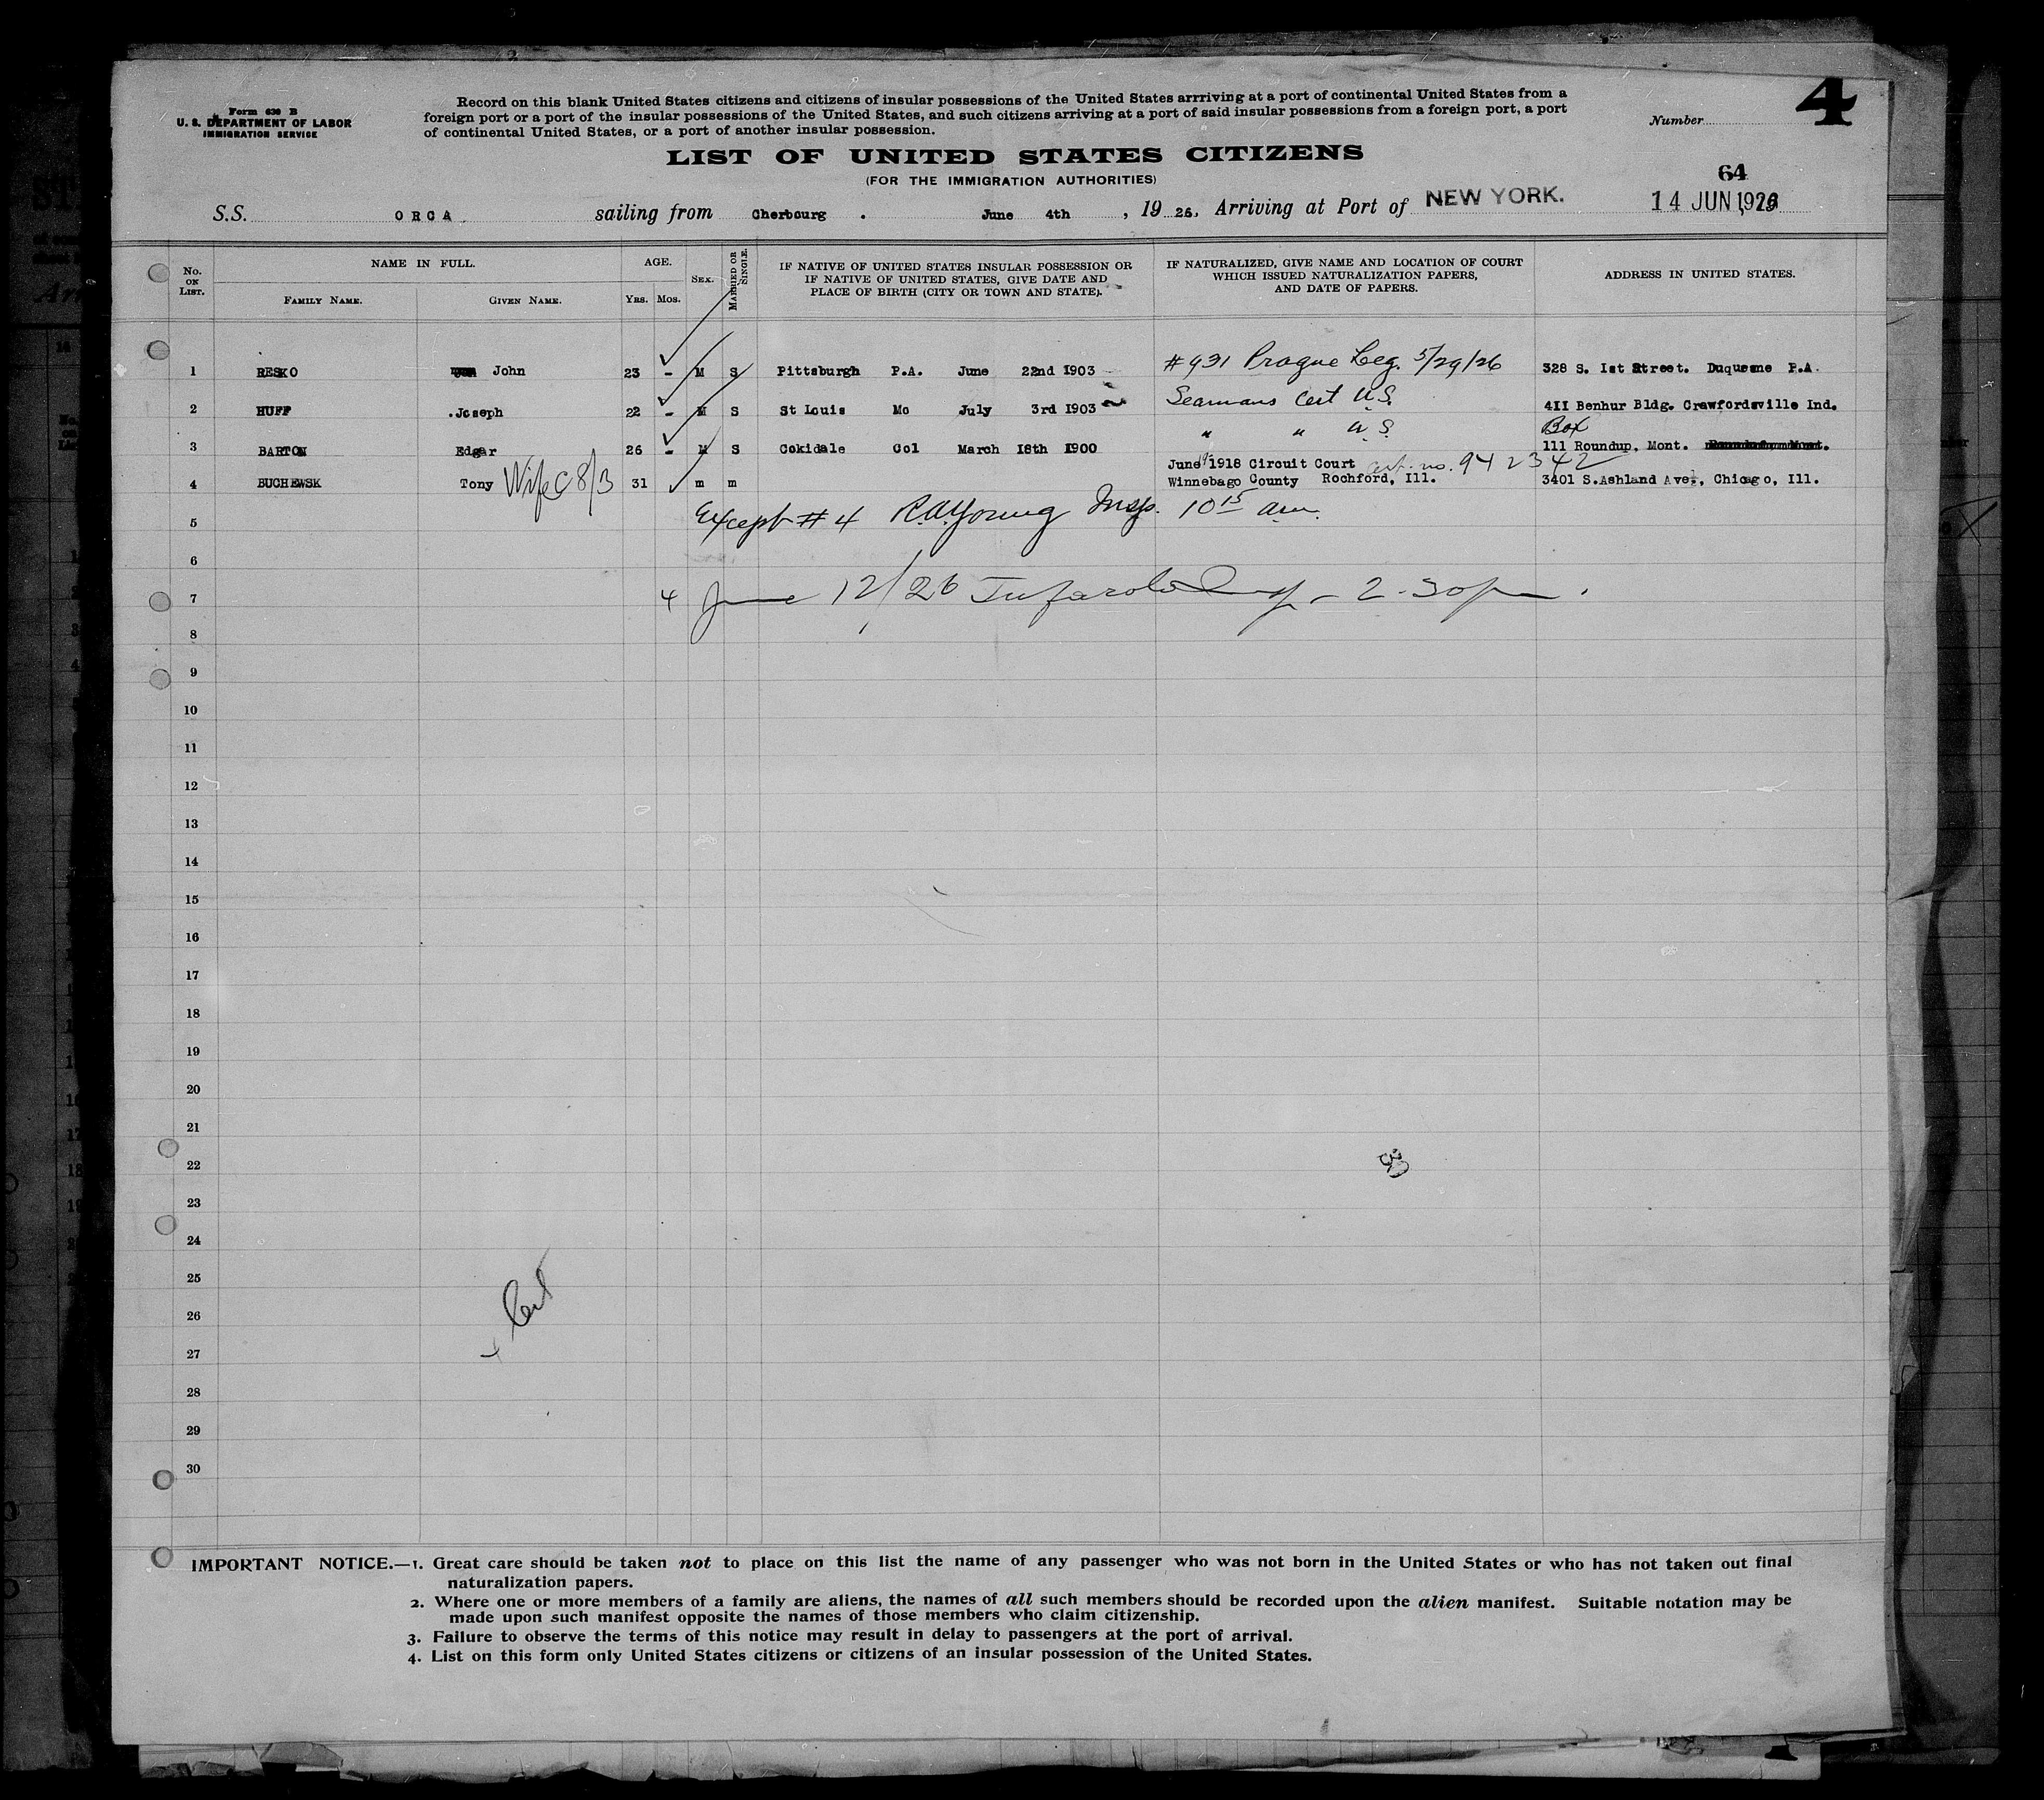 4
Form 630 B
U. S. DEPARTMENT OF LABOR
IMMIGRATION SERVICE
Record on this blank United States citizens and citizens of insular possessions of the United States arrriving at a port of continental United States from a
foreign port or a port of the insular possessions of the United States, and such citizens arriving at a port of said insular possessions from a foreign port, a port
of continental United States, or a port of another insular possession.
Number
LIST OF UNITED STATES CITIZENS
(FOR THE IMMIGRATION AUTHORITIES)
64
S.S. ORCA. sailing from Cherbourg . June 4th , 19 26, Arriving at Port of NEW YORK. 14 JUN 1926
No. ON LIST. NAME IN FULL. AGE. SEX. MARRIED OR SINGLE. IF NATIVE OF UNITED STATES INSULAR POSSESSION OR IF NATIVE OF UNITED STATES, GIVE DATE AND PLACE OF BIRTH (CITY OR TOWN AND STATE). IF NATURALIZED, GIVE NAME AND LOCATION OF COURT WHICH ISSUED NATURALIZATION PAPERS, AND DATE OF PAPERS. ADDRESS IN UNITED STATES.
FAMILY NAME. GIVEN NAME. YRS. MOS.
1 RESKO John 23 - M S Pittsburgh P.A. June 22nd 1903 #931 Prague Leg. 5/29/26 328 S. Ist Street. Duquesne P.A.
2 HUFF .Joseph 22 - M S St Louis Mo July 3rd 1903 Seamans Cert U.S. 4II Benhur Bldg. Crawfordsville Ind.
3 BARTON Edgar 26 - M S Cokidale Col March 18th 1900 " " U.S. Box 111 Roundup, Mont.
June 1918 Circuit Court cert. no. 942342
4 BUCHEWSK Tony Wife C 8/3 31 m m Winnebago County Rochford, Ill. 3401 S.Ashland Ave., Chicago, Ill.
5 Except #4 R.A.Young Insp. 10 15 am.
6
7 4 June 12/26 Insp - 2-30pm.
8
9
10
11
12
13
14
15
16
17
18
19
20
21
22
23
24
25
26
27
28
29
30
Cert
IMPORTANT NOTICE.—1. Great care should be taken not to place on this list the name of any passenger who was not born in the United States or who has not taken out final
naturalization papers.
2. Where one or more members of a family are aliens, the names of all such members should be recorded upon the alien manifest. Suitable notation may be
made upon such manifest opposite the names of those members who claim citizenship.
3. Failure to observe the terms of this notice may result in delay to passengers at the port of arrival.
4. List on this form only United States citizens or citizens of an insular possession of the United States.